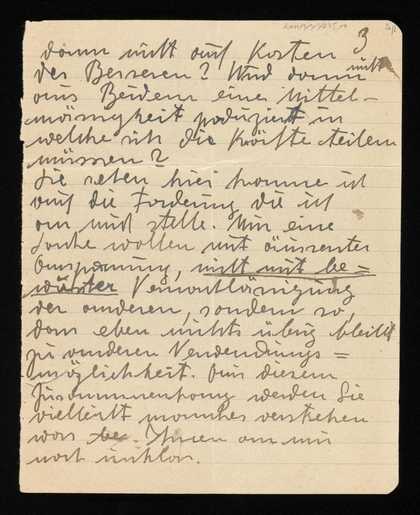 3
dann nicht auf Kosten
des Besseren? Wird dann nicht
aus Beidem eine Mittel-
mässigkeit produziert in
welche sich die Kräfte teilen
müssen?
Sie sehen hier komme ich
auf die Forderung die ich
an mich stelle. Nur eine
Sache wollen mit äusserster
Anspannung, nicht mit be=
wusster Vernachlässigung
der anderen, sondern so,
dass eben nichts übrig bleibt
zu anderen Verwendungs=
möglichkeit. Aus diesem
Zusammenhang werden Sie
vielleicht manches verstehen
was be. Ihnen an mir
noch unklar.